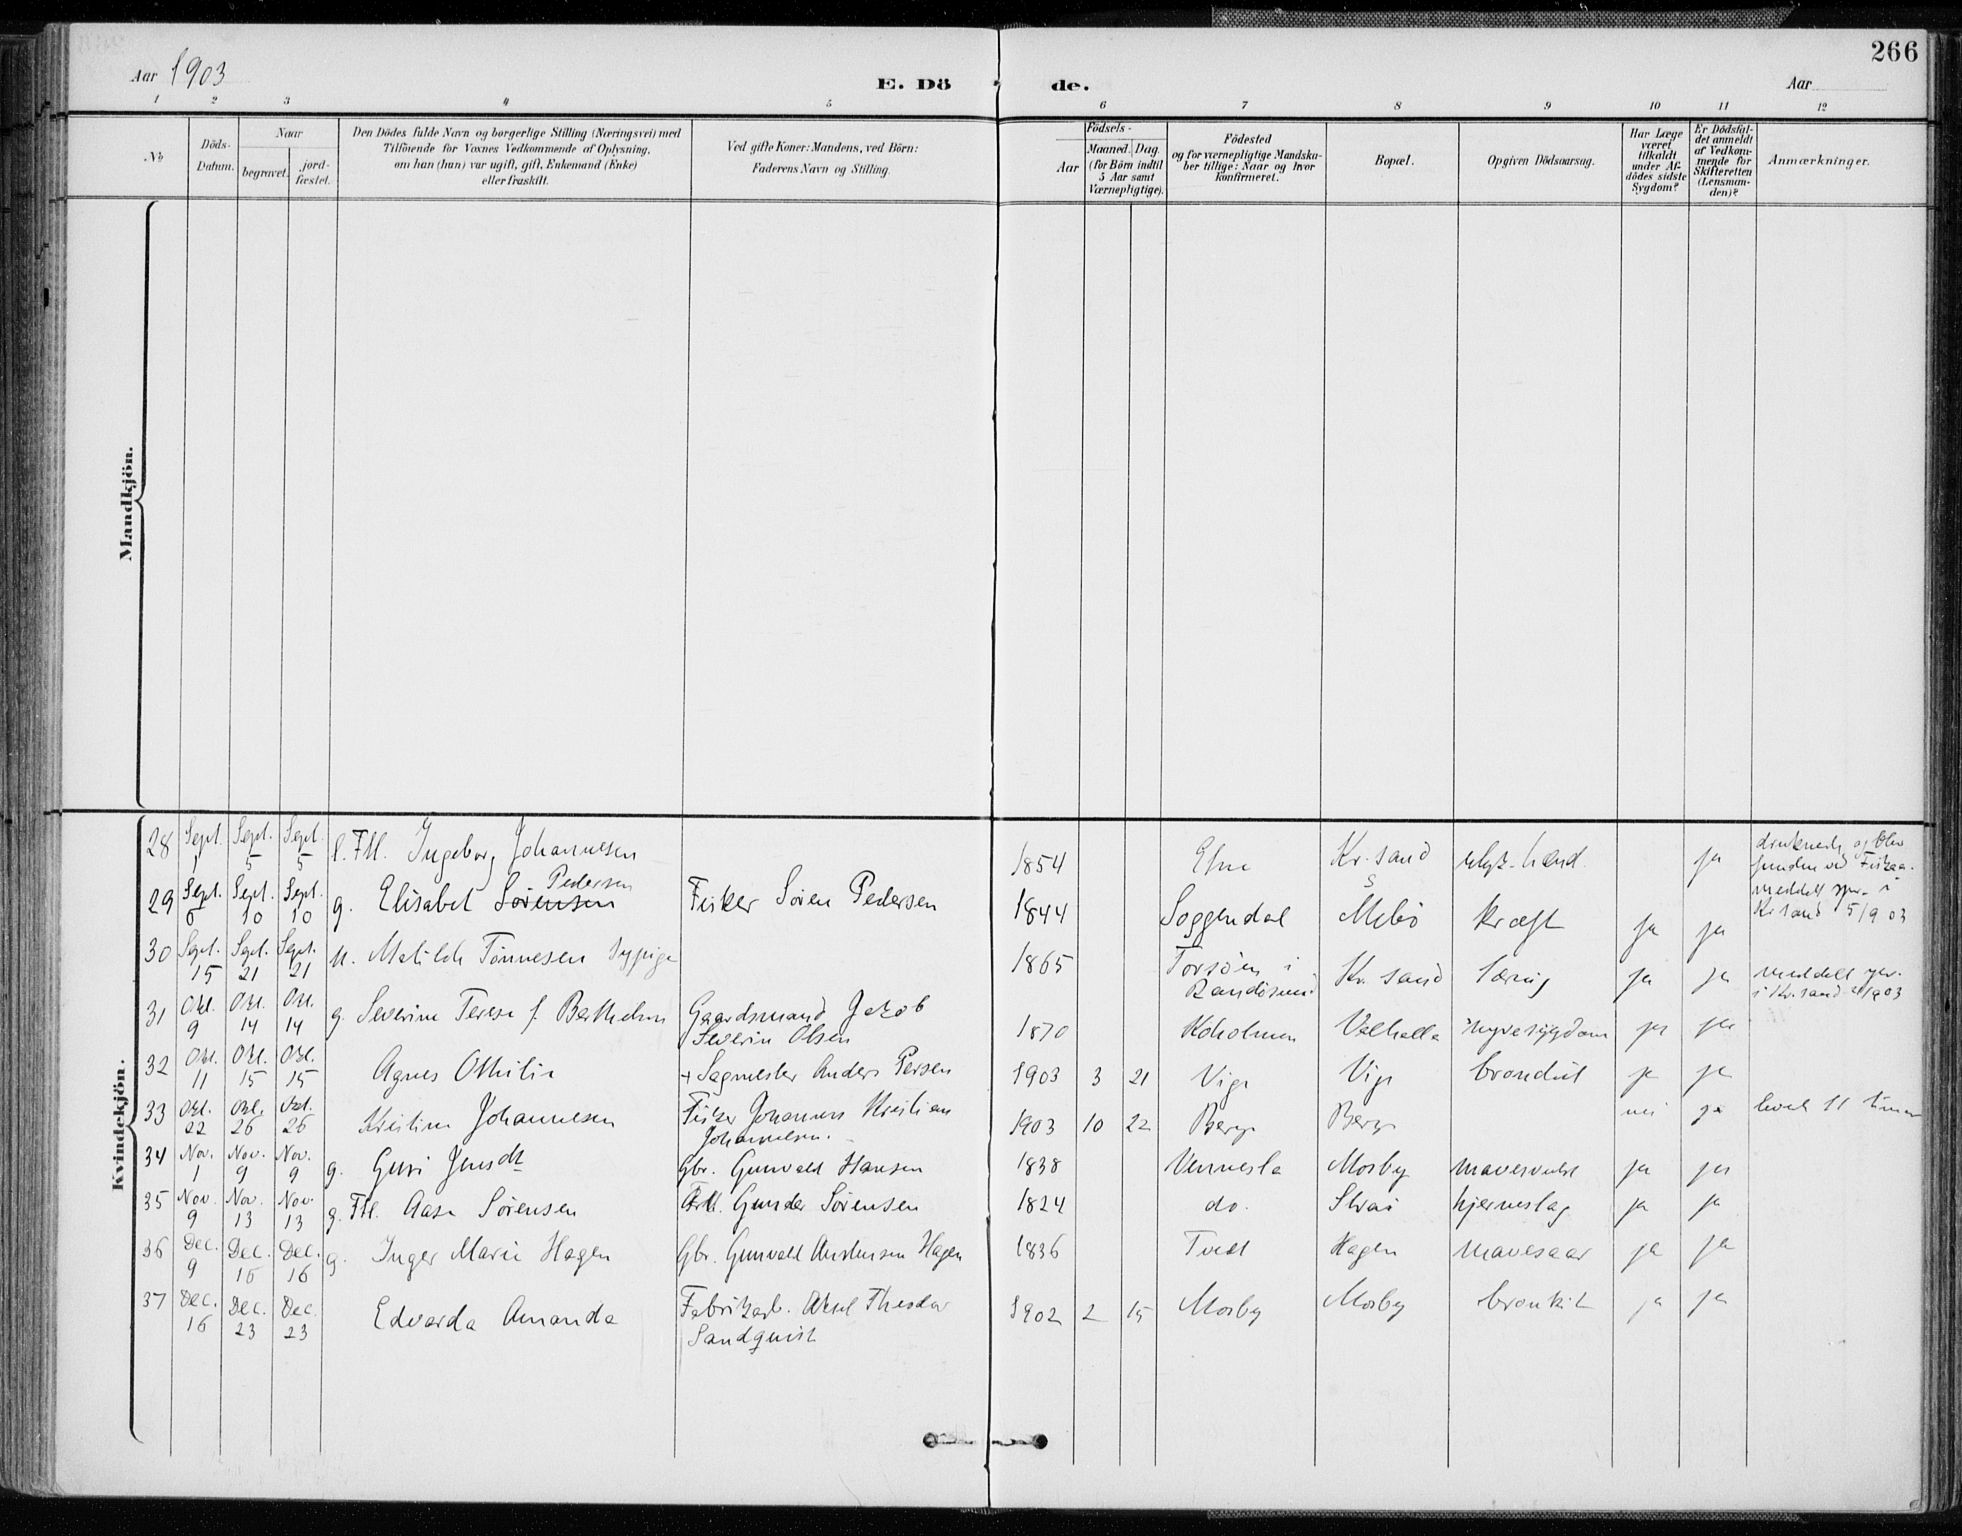 266
Aar 1903
E. Dö
de.
Aar
1 2 3 4 5 6 7 8 9 10 11 12
No.
Döds-
Datum.
Naar
begravet.
jord-
fæstet.
Den Dödes fulde Navn og borgerlige Stilling (Næringsvei) med
Tilföiende for Voxnes Vedkommende af Oplysning,
om han (hun) var ugift, gift, Enkemand (Enke)
eller fraskilt.
Ved gifte Koner: Mandens, ved Börn:
Faderens Navn og Stilling.
Födsels-
Aar
Maaned. Dag.
(for Börn indtil
5 Aar samt
Værnepligtige).
Födested
og for værnepligtige Mandska-
ber tillige: Naar og hvor
konfirmeret.
Bopæl.
Opgiven Dödsaarsag.
Har Læge
været
tilkaldt
under Af-
dödes sidste
Sygdom?
Er Dödsfal-
det anmeldt
af Vedkom-
mende for
Skifteretten
(Lensman-
den)?
Anmærkninger.
Mandkjön.
Kvindekjön.
28 Sept. 1 Sept. 5 Sept. 5 Ingeborg Johannesen 1854 Kr.sand ja druknede og blev
funden ved Fiskaa.
meddelt spr. i
Kr.sand 5/9 03
29 Sept. 6 Sept. 10 Sept. 10 g. Elisabet Sørensen Pedersen Fisker Søren Pedersen 1844 Soggendal Mebø kræft ja ja
30 Sept. 15 Sept. 21 Sept. 21 u. Matilde Tønnesen Sypige 1865 Torsøen i
Randøsund Kr.sand tæring ja ja meddelt spr.
i Kr.sand 03
31 Okt. 9 Okt. 14 Okt. 14 g. Severine Terese f. Berthelsen Gaardsmand Jakob
Severin Olsen 1870 Koholmen Valhalla nyresygdom ja ja
32 Okt. 11 Okt. 15 Okt. 15 Agnes Othilie + Sagmester Anders Persen 1903 3 21 Vige Vige ja ja
33 Okt. 22 Okt. 26 Okt. 26 Kristine Johannesen Fisker Johannes Kristian
Johannesen. 1903 10 22 Berge Berge nei ja levet 11 timer
34 Nov. 1 Nov. 9 Nov. 9 g. Guri Jensdt Gbr. Gunvald Hansen 1838 Vennesla Mosby ja ja
35 Nov. 9 Nov. 13 Nov. 13 g. Aase Sørensen Gunder Sørensen 1824 do. Strai hjerneslag ja ja
36 Dec. 9 Dec. 16 Dec. 16 g. Inger Marie Hagen Gbr. Gunvald Hagen 1836 Tveit Hagen mavesaar ja ja
37 Dec. 16 Dec. 23 Dec. 23 Edvarda Amanda Fabrikarb. Aksel Theodor
Sandquist 1902 2 15 Mosby Mosby bronkit ja ja